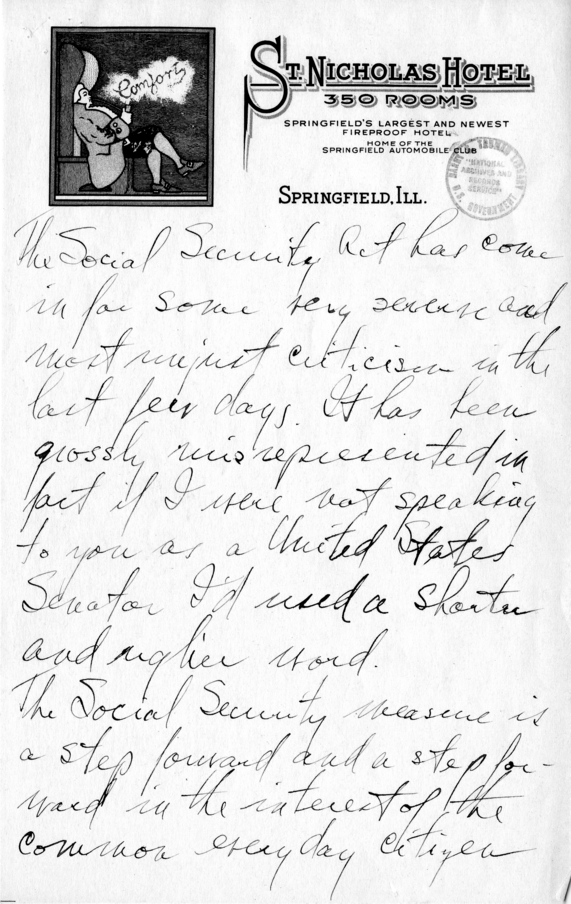 Comfort
ST. NICHOLAS HOTEL
350 ROOMS
SPRINGFIELD'S LARGEST AND NEWEST
FIREPROOF HOTEL
HOME OF THE
SPRINGFIELD AUTOMOBILE CLUB
HARRY S. TRUMAN LIBRARY
"NATIONAL
ARCHIVES AND
RECORDS
SERVICE"
U.S. GOVERNMENT
SPRINGFIELD, ILL.
The Social Security Act has come
in for some very severse and
most unjust criticism in the
last few days. It has been
grossly misrepresented in
fact if I were not speaking
to you as a United States
Senator I'd used a shorter
and uglier word.
The Social Security measure is
a step forward and a step for-
ward in the interest of the
common everyday citizen